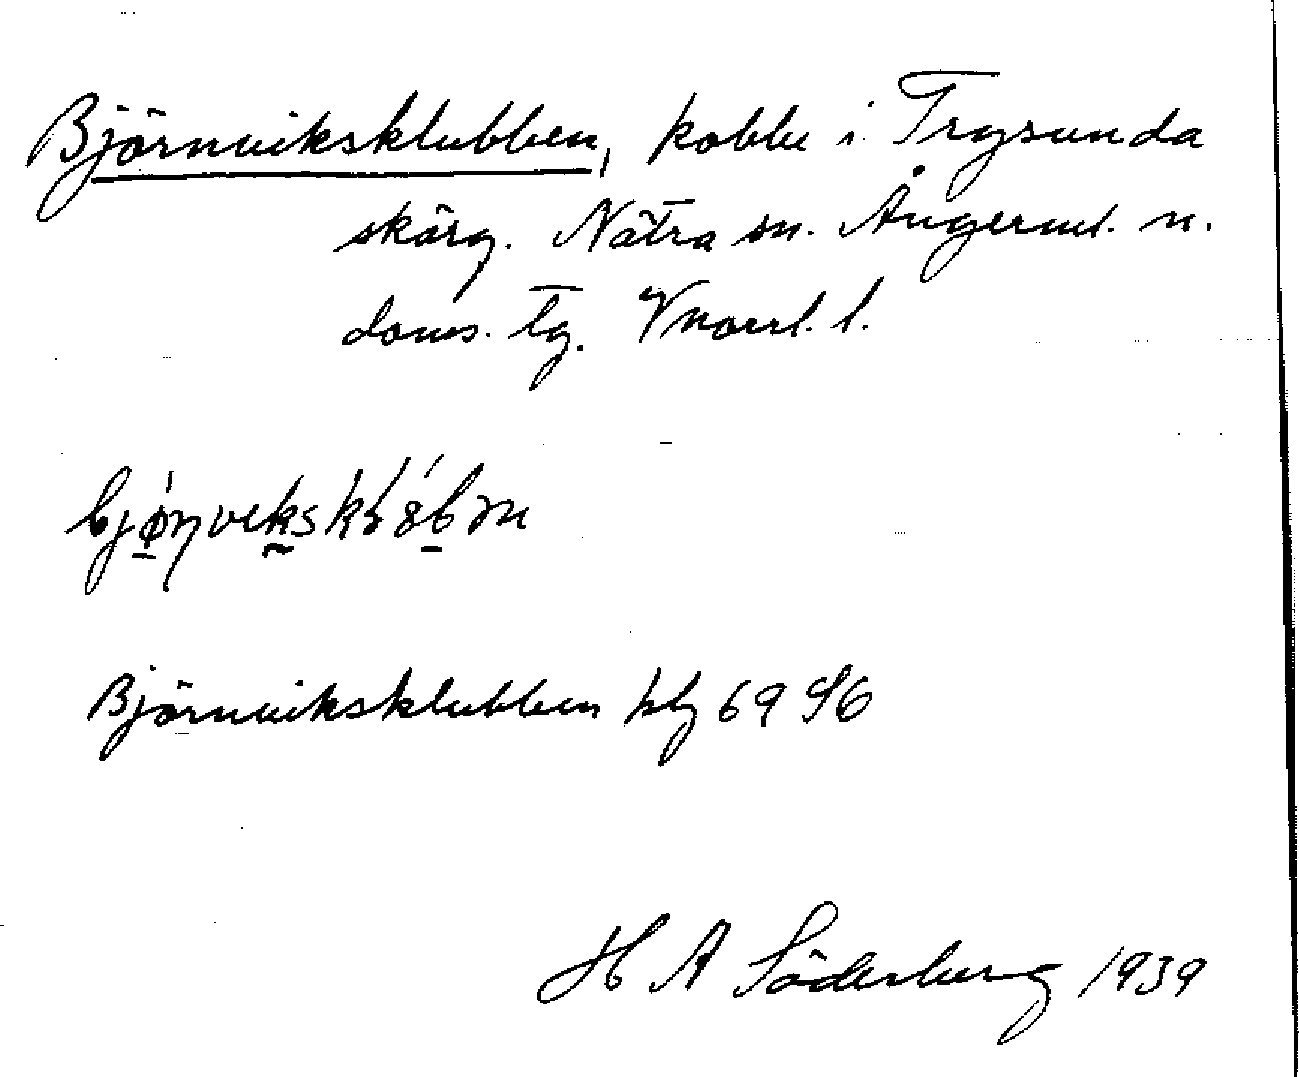 Björnviksklubben, kobbe i Trysunda
skärg. Nätra sn. Ångerml. n.
doms. tg. Vnorrl. l.
Björnviksklubben hlz 69 S6
H A Söderberg 1939